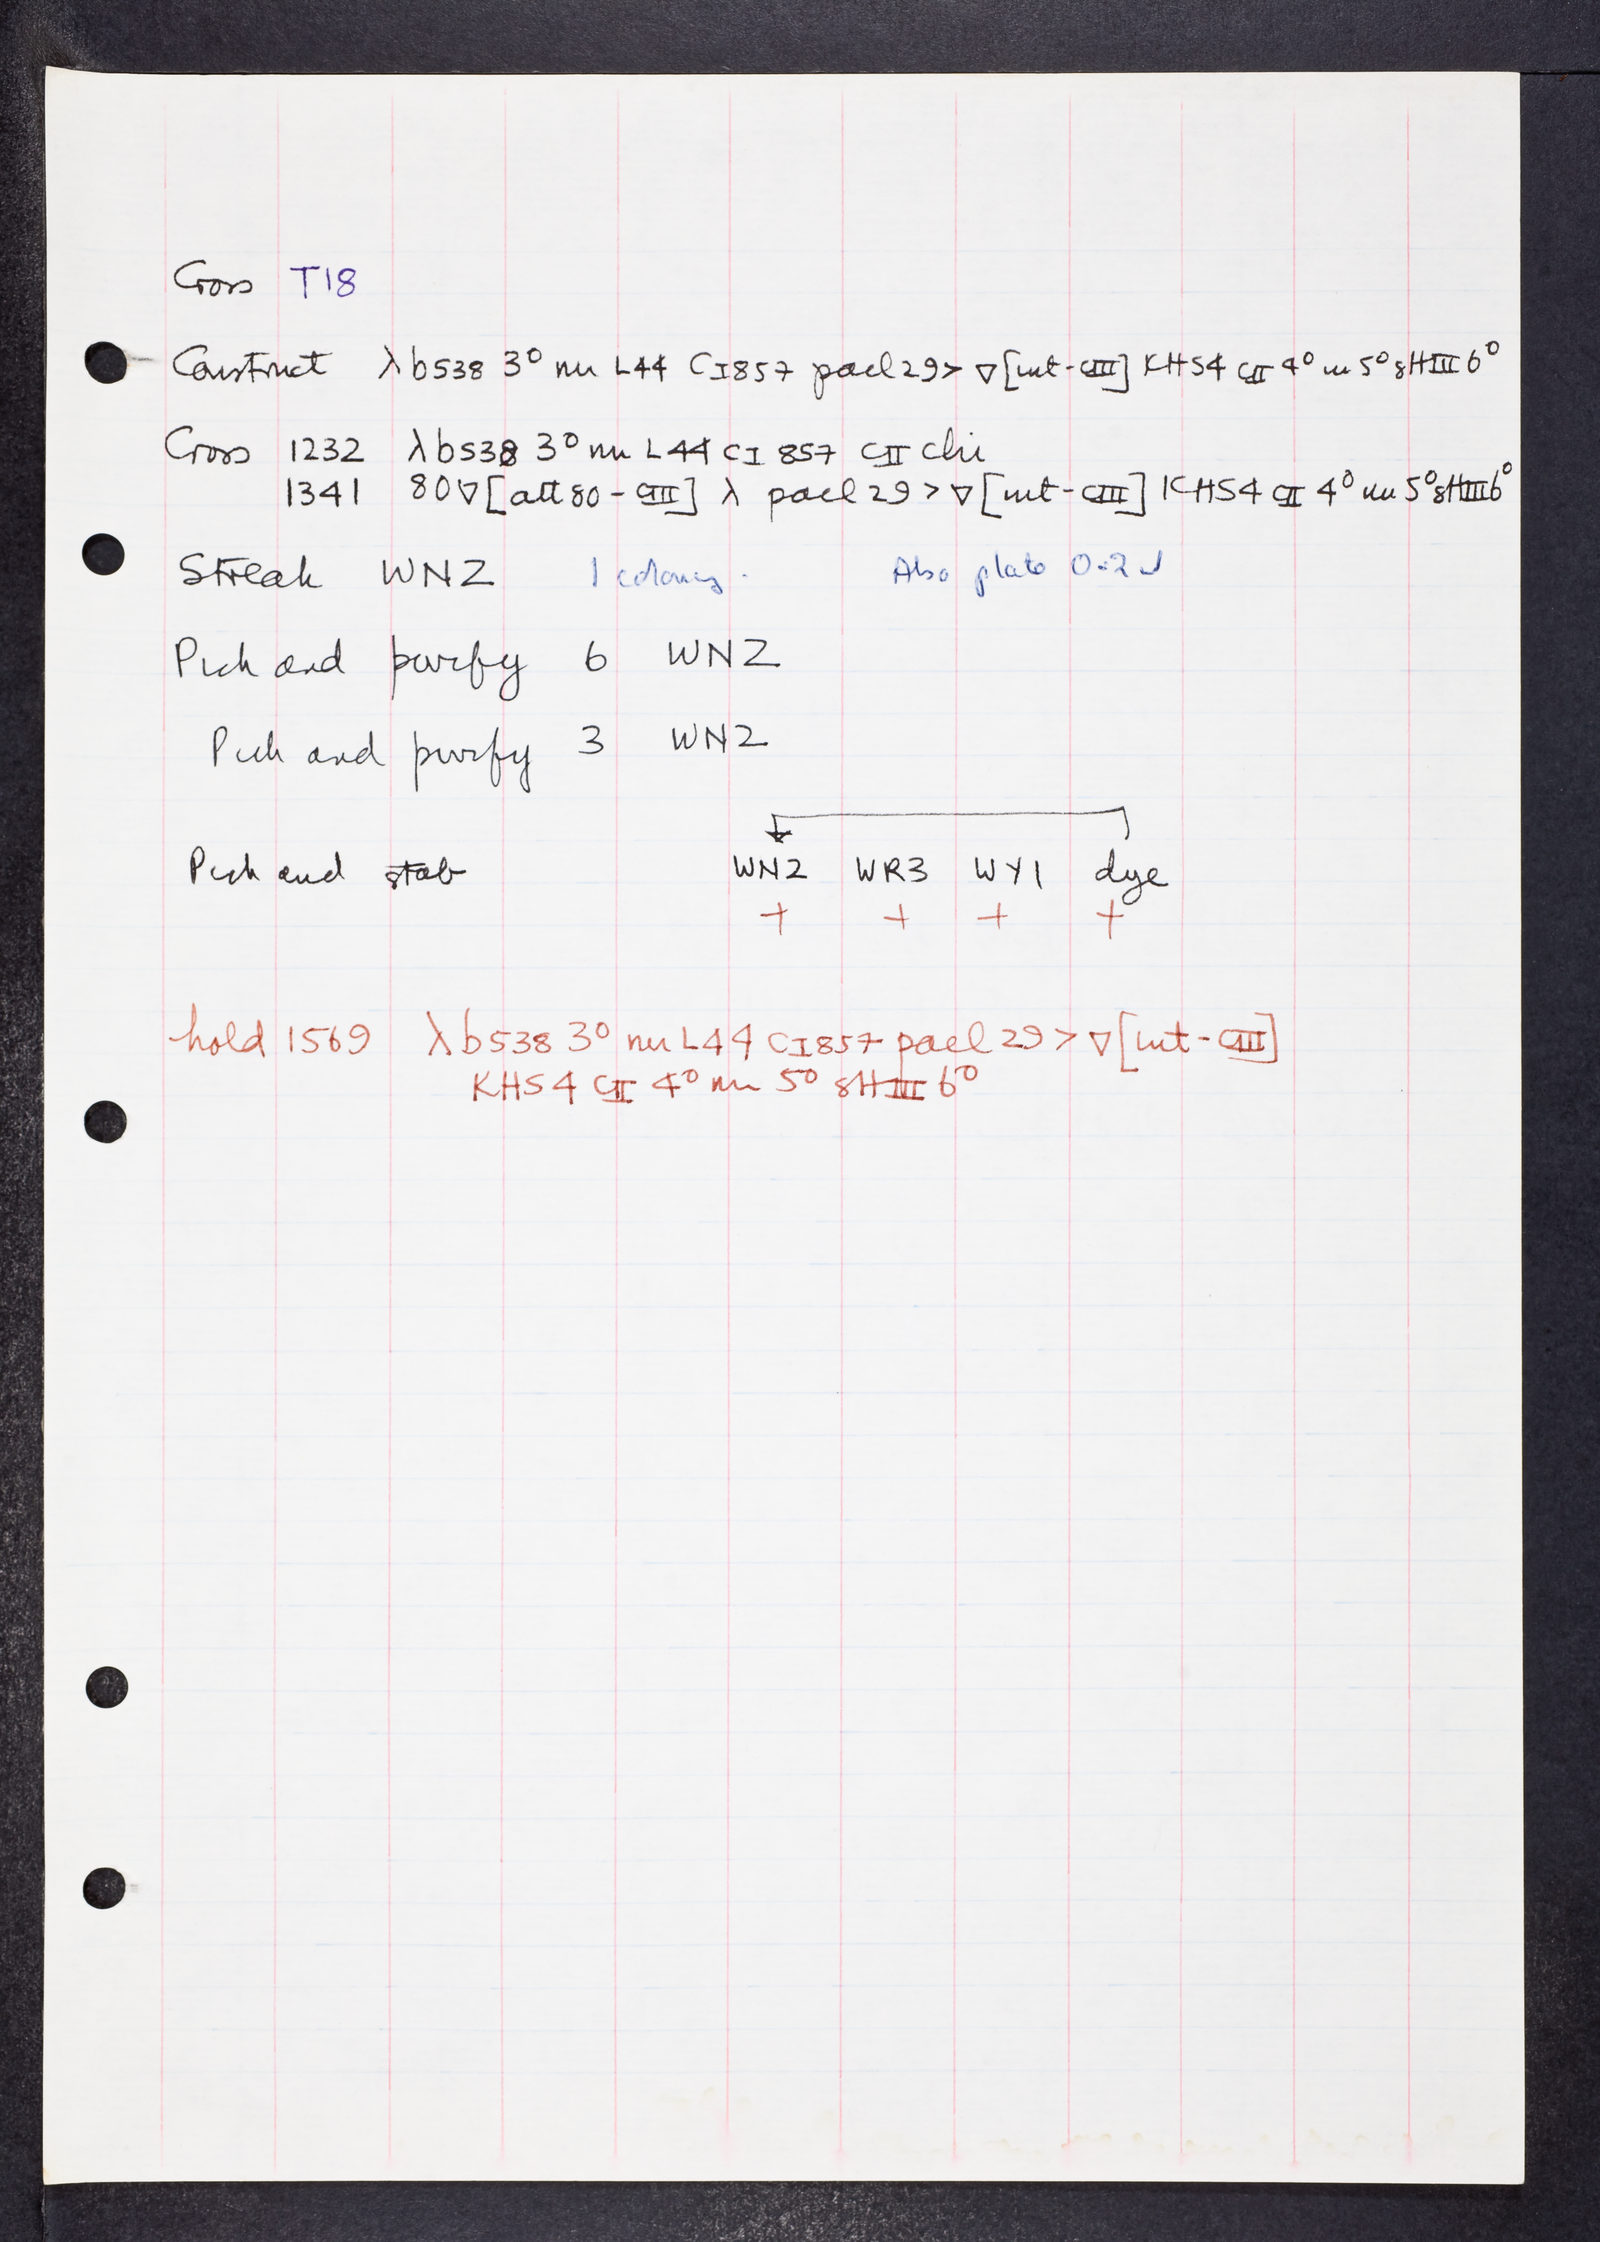 Cross T18
Construct λ b538 3° nin L44 CI857 pael 29> ▽[int-CIII] KH54 CII 4° nin 5° sHIII 6°
Cross 1232 λ b538 3° nin L44 CI 857 CII chi
1341 80▽[att80-CIII] λ pael 29> ▽[int-CIII] KH54 CII 4° nin 5° sHIII 6°
Streak WN2 1 colony. Also plate 0.2
Pick and purify 6 WN2
Pick and purify 3 WN2
Pick and stab WN2 WR3 WY1 dye
+ + + +
hold 1569 λ b538 3° nin L44 CI857 pael 29> ▽[int-CIII]
KH54 CII 4° nin 5° sHIII 6°